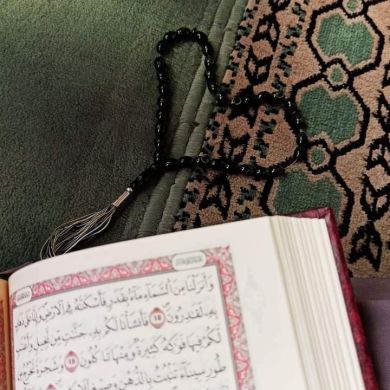 وَأَنزَلْنَا مِنَ ٱلسَّمَآءِ مَآءًۢ بِقَدَرٍ فَأَسْكَنَّٰهُ فِى ٱلْأَرْضِ وَإِنَّا عَلَىٰ ذَهَابٍۭ
بِهِۦ لَقَٰدِرُونَ ١٨ فَأَنشَأْنَا لَكُم بِهِۦ جَنَّٰتٍ مِّن نَّخِيلٍ وَأَعْنَٰبٍ
لَّكُمْ فِيهَا فَوَٰكِهُ كَثِيرَةٌ وَمِنْهَا تَأْكُلُونَ ١٩ وَشَجَرَةً تَخْرُجُ مِن
طُورِ سَيْنَآءَ تَنۢبُتُ بِٱلدُّهْنِ وَصِبْغٍ